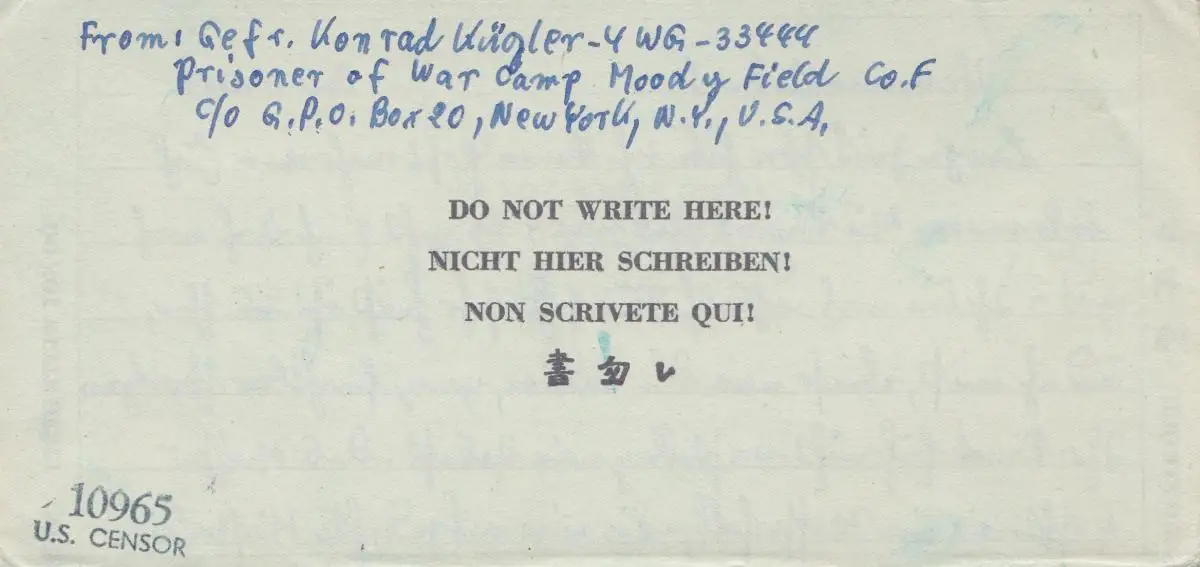 From: Gefr. Konrad Kügler-4 WG-33444
Prisoner of War Camp Moody Field Co.F
c/o G.P.O. Box 20, New York, N.Y., U.S.A.
DO NOT WRITE HERE!
NICHT HIER SCHREIBEN!
NON SCRIVETE QUI!
書勿レ
10965
U.S. CENSOR